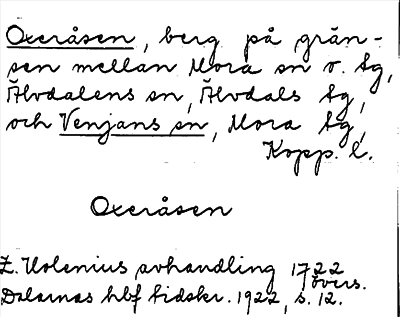 Oxeråsen, berg på grän-
sen mellan Mora sn o. tg,
Älvdalens sn, Älvdals tg,
och Venjans sn, Mora tg,
Kopp. l.
Oxeråsen
Z. Holenius avhandling 1722
övers.
Dalarnas hbf tidskr. 1922, s. 12.